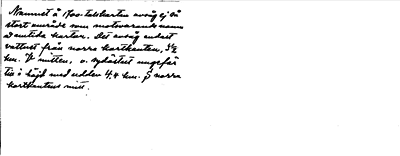 Namnet å 1700-talskartan avsåg ej så
stort område som motsvarande namn
å nutida kartor. Det avsåg endast
vattnet från norra kartkanten, 3½
km. V mitten, o. sydöstut ungefär
till i höjd med udden 4,4 km. S norra
kartkantens mitt.